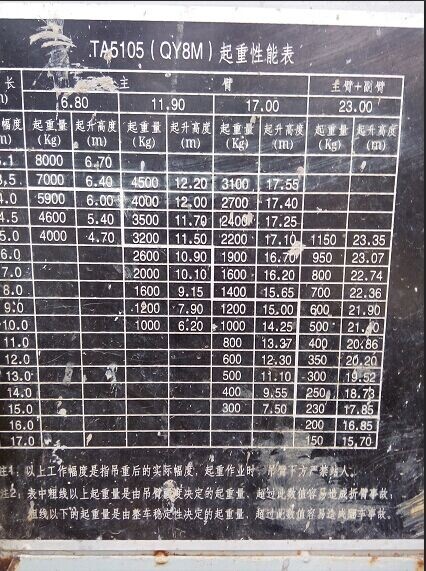 TA5105（QY8M）起重性能表
长 主 臂 主臂+副臂
6.80 11.90 17.00 23.00
幅度 起重量 起升高度 起重量 起升高度 起重量 起升高度 起重量 起升高度
(Kg) (m) (Kg) (m) (Kg) (m) (Kg) (m)
.1 8000 6.70
3.5 7000 6.40 4500 12.20 3100 17.55
4.0 5900 6.00 4000 12.00 2700 17.40
4.5 4600 5.40 3500 11.70 2400 17.25
5.0 4000 4.70 3200 11.50 2200 17.10 1150 23.35
6.0 2600 10.90 1900 16.70 950 23.07
7.0 2000 10.10 1600 16.20 800 22.74
8.0 1600 9.15 1400 15.65 700 22.36
9.0 1200 7.90 1200 15.00 600 21.90
10.0 1000 6.20 1000 14.25 500
11.0 800 13.37 400 20.86
12.0 600 12.30 350 20.20
13.0 500 11.10 300 19.52
14.0 400 9.55 250 18.73
15.0 300 7.50 230 17.85
16.0 200 16.85
17.0 150 15.70
注1：以上工作幅度是指吊重后的实际幅度，起重作业时，吊臂下方严禁站人。
注2：表中粗线以上起重量是由吊臂强度决定的起重量，超过此数值容易造成折臂事故，
粗线以下的起重量是由整车稳定性决定的起重量，超过此数值容易造成翻车事故。